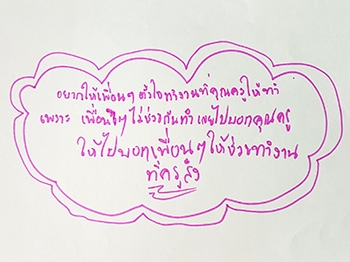 อยากให้เพื่อนๆ ตั้งใจทำงานที่คุณครูให้ทำ
เพราะ เพื่อนๆ ไม่ช่วยกันทำ เลยไปบอกคุณครู
ให้ไปบอกเพื่อนๆ ให้ช่วยทำงาน
ที่ครูสั่ง